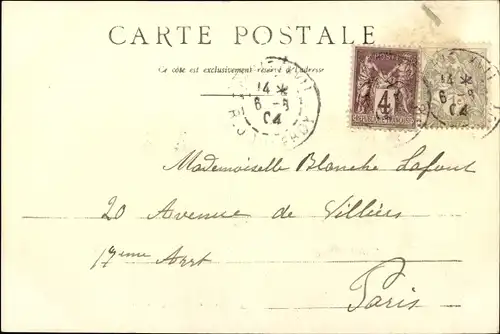 CARTE POSTALE
Ce côté est exclusivement réservé à l'adresse
14
6 -8
04
4
14
6 -8
04
Mademoiselle Blanche Lafont
20 Avenue de Villiers
17eme Arrt
Paris